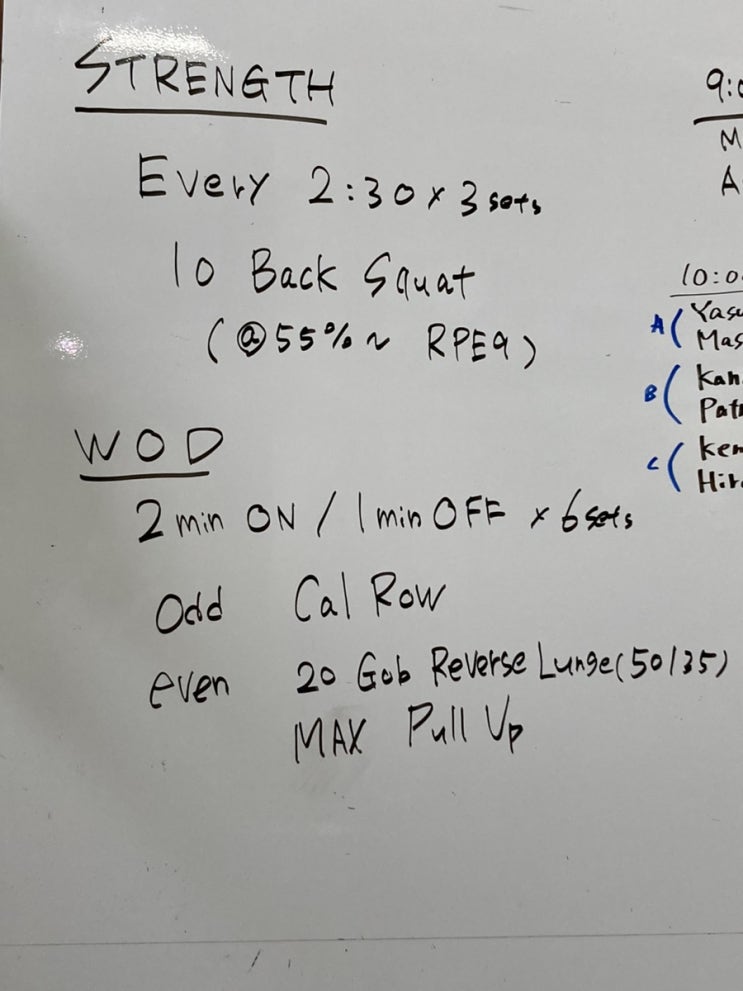 STRENGTH
Every 2:30 x 3 sets
10 Back Squat
(@55%~ RPE9)
WOD
2 min ON / 1 min OFF x 6 sets
Odd Cal Row
even 20 Gob Reverse Lunge (50/35)
MAX Pull Up
A
B
C